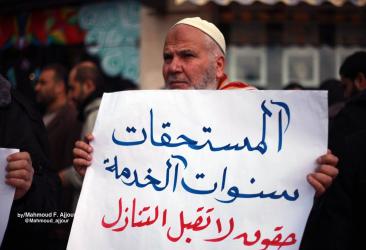 المستحقات
سنوات الخدمة
حقوق لا تقبل التنازل
by/Mahmoud F. Ajjour
@Mahmoud_ajjour